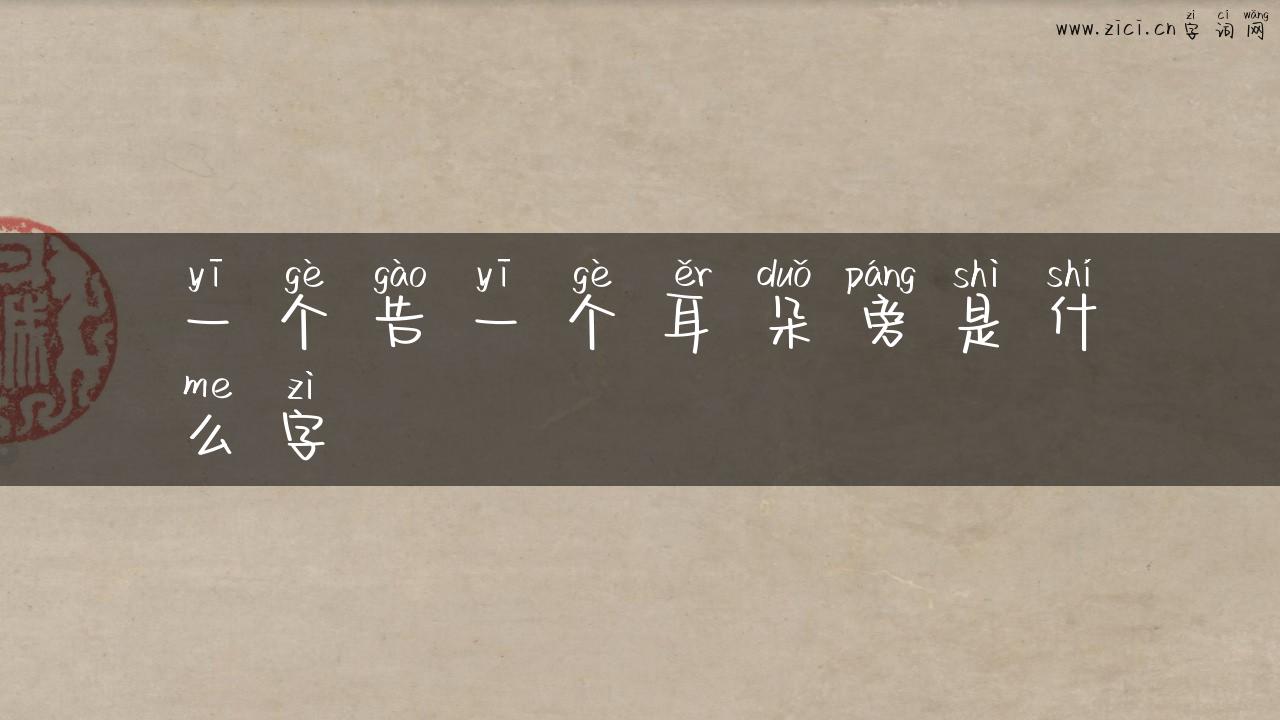 www.zici.cn zì cí wǎng
字词网
yī gè gào yī gè ěr duǒ páng shì shí
一个告一个耳朵旁是什
me zì
么字